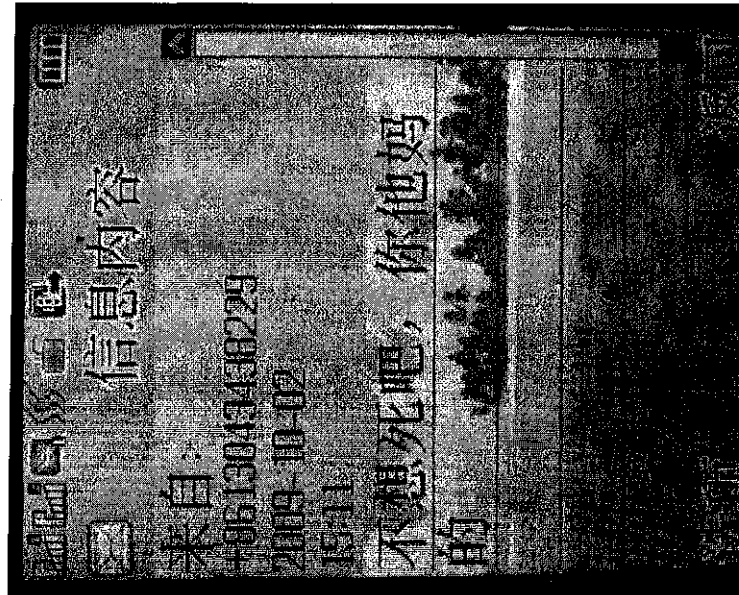 信息内容
来自:
+8613043438229
2009-10-02
15:11
不想死吧，你他妈
的